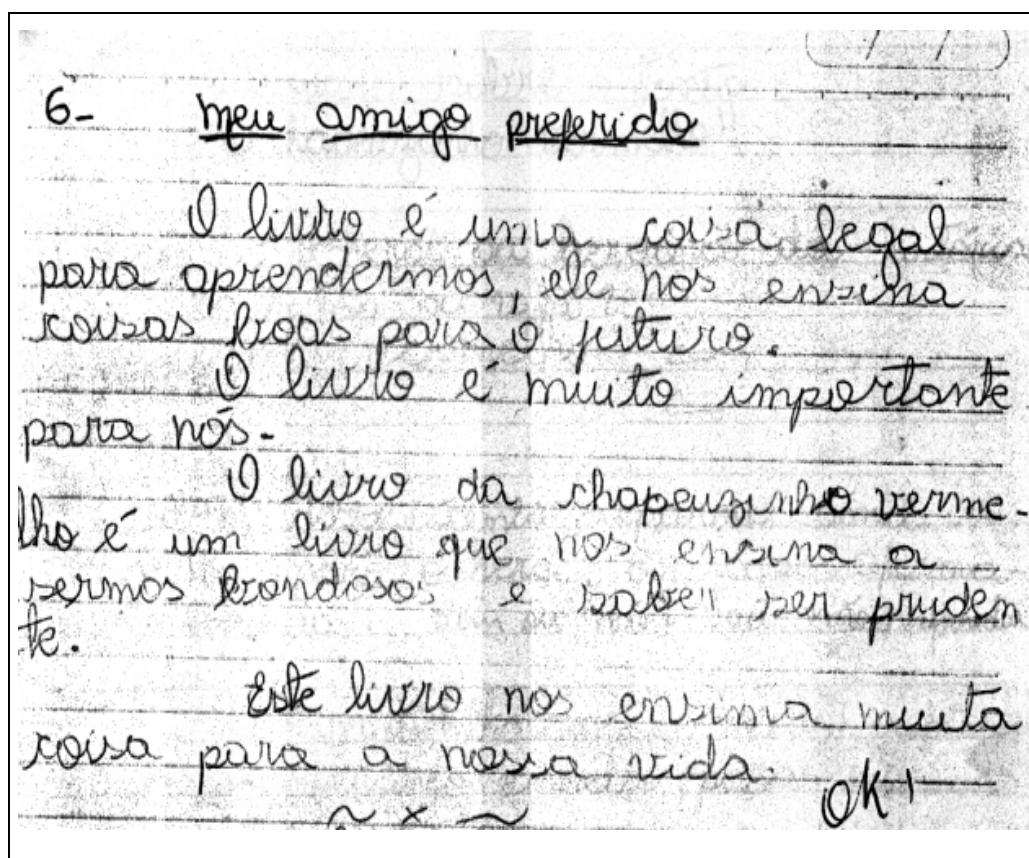 6- Meu amigo preferido
O livro é uma coisa legal
para aprendermos, ele nos ensina
coisas boas para o futuro.
O livro é muito importante
para nós.
O livro da chapeuzinho verme-
lho é um livro que nos ensina a
sermos bondosos e saber ser pruden
te.
Este livro nos ensina muita
coisa para a nossa vida.
OK!